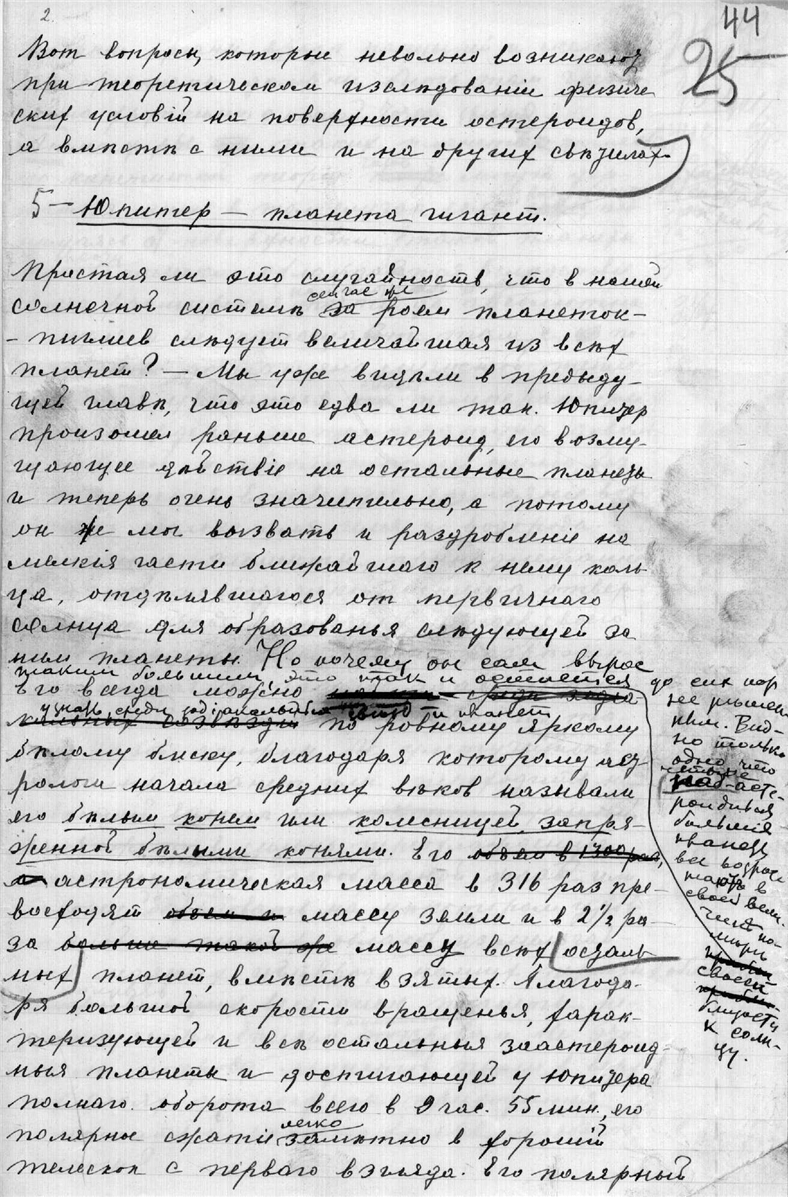 2.
44
25
Вот вопросы, которые невольно возникают
при теоретическом изслѣдованіи физиче
ских условій на поверхности астероидов,
а вмѣстѣ с ними и на других свѣтилах.
5 — Юпитер — планета гигант.
Простая ли это случайность, что в нашей
сейчас же
солнечной системѣ за роем планеток-
- пигмеев слѣдует величайшая из всѣх
планет? — Мы уже видѣли в предыду-
щей главѣ, что это едва ли так. Юпитер
произошел раньше астероид, его возму-
щающее дѣйствіе на остальные планеты
и теперь очень значительно, а потому
он же мог вызвать и раздробленіе на
мелкія части ближайшаго к нему коль-
ца, отдѣлявшагося от первичнаго
солнца для образованья слѣдующей за
ним планеты. Но почему он сам вырос
таким большим, это так и остается до сих пор
Его всегда можно
узнать среди зодіакальных звѣзд и планет
по ровному яркому
бѣлому блеску, благодаря которому аст
рологи начала средних вѣков называли
его бѣлым конем или колесницей запря-
женной бѣлыми конями. Его объем в 1300 раз,
а астрономическая масса в 316 раз пре-
восходят объем и массу земли и в 2½ ра-
за больше такой же массу всѣх осталь-
ных планет, вмѣстѣ взятых. Благода-
ря большой скорости вращенья, харак-
теризующей и всѣ остальныя заастероид-
ныя планеты и достигающей у Юпитера
полнаго оборота всего в 9 час. 55 мин., его
легко
полярное сжатіе замѣтно в хорошій
телескоп с перваго взгляда. Его полярный
не рѣшен-
ным. Вид-
но только
одно что
асте-
роидныя
большія
планеты
всѣ возрас-
тают в
своей вели-
чинѣ по
мѣрѣ
своей
близости
к солн-
цу.